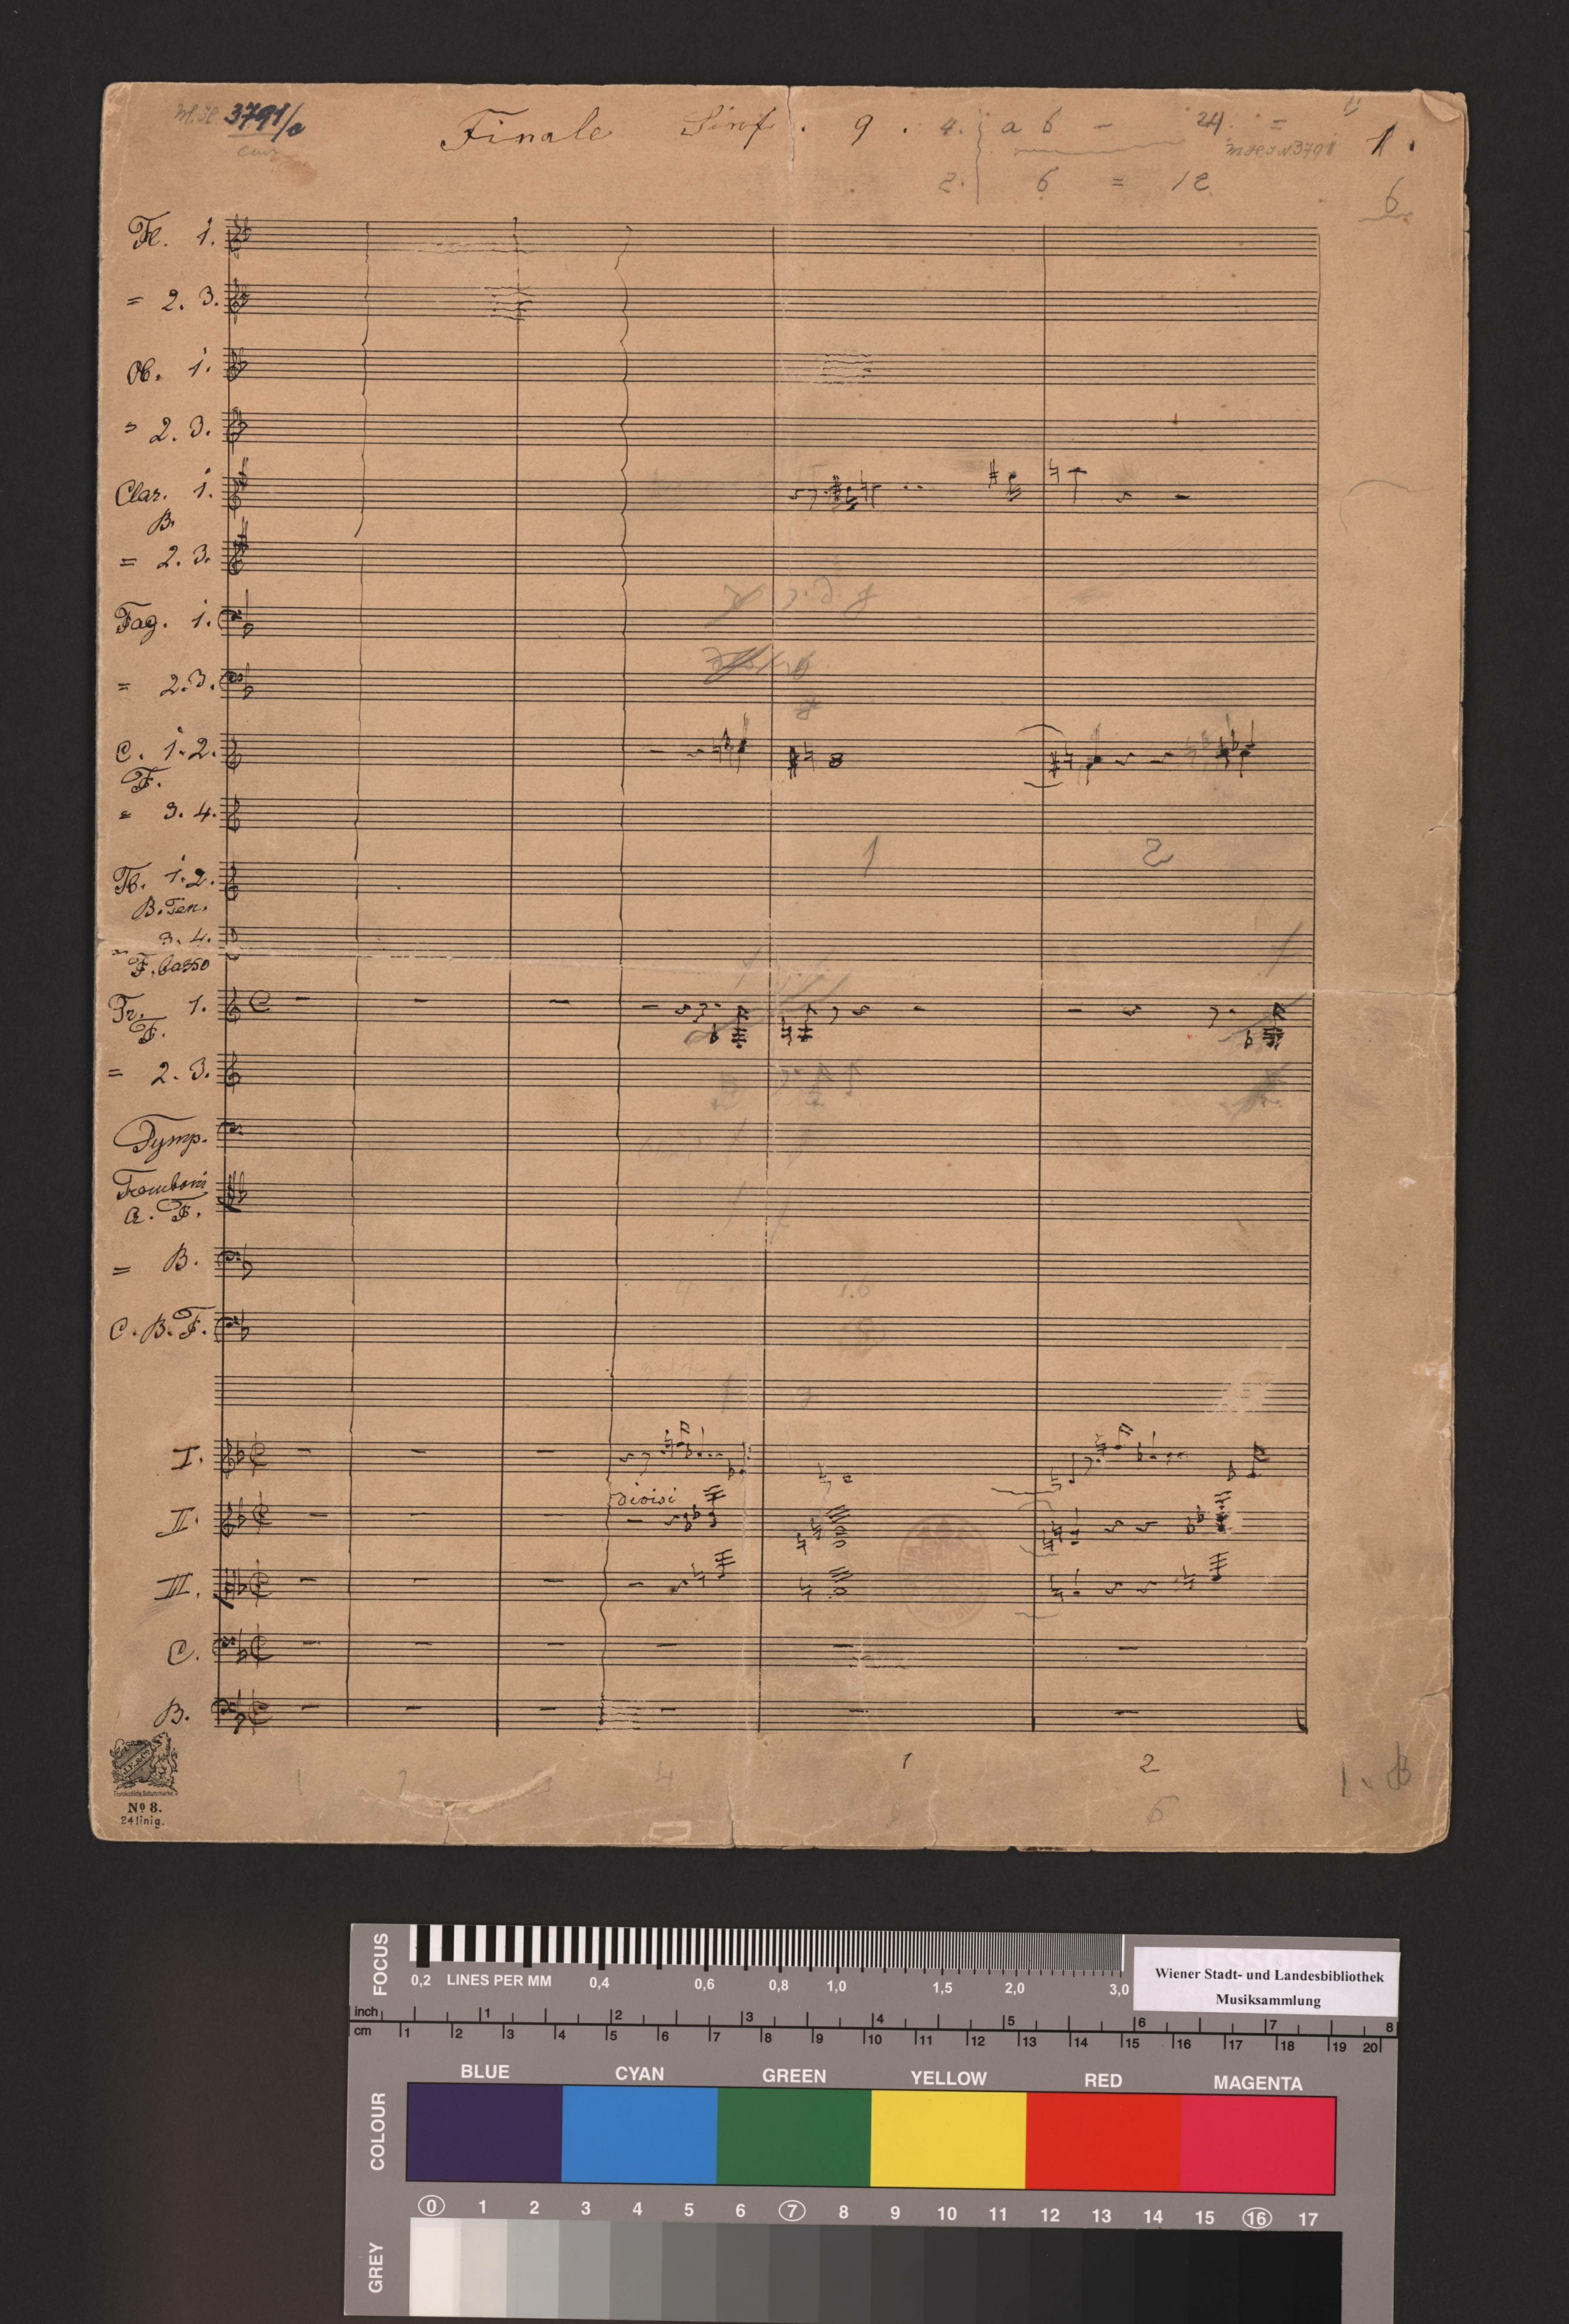 3791/a
Finale Sinf. 9. 4. a 6 - 24. = 1.
2. 6 = 12
6
Fl. 1.
= 2. 3.
Ob. 1.
= 2. 3.
Clar. 1.
B.
= 2. 3.
Fag. 1.
= 2. 3.
C. 1. 2.
F.
= 3. 4.
1 2
Tb. 1. 2.
B. Ten.
= 3. 4.
F. basso
Tr. 1.
F.
= 2. 3.
Tymp.
Tromboni
A. T.
= B.
C. B. T.
I.
divisi
II.
III.
C.
B.
1 2 3 4 1 2
6
No 8.
24linig.
FOCUS
0,2 LINES PER MM 0,4 0,6 0,8 1,0 1,5 2,0 3,0
Wiener Stadt- und Landesbibliothek
Musiksammlung
inch 1 2 3 4 5 6 7 8
cm 1 2 3 4 5 6 7 8 9 10 11 12 13 14 15 16 17 18 19 20
COLOUR
BLUE CYAN GREEN YELLOW RED MAGENTA
0 1 2 3 4 5 6 7 8 9 10 11 12 13 14 15 16 17
GREY